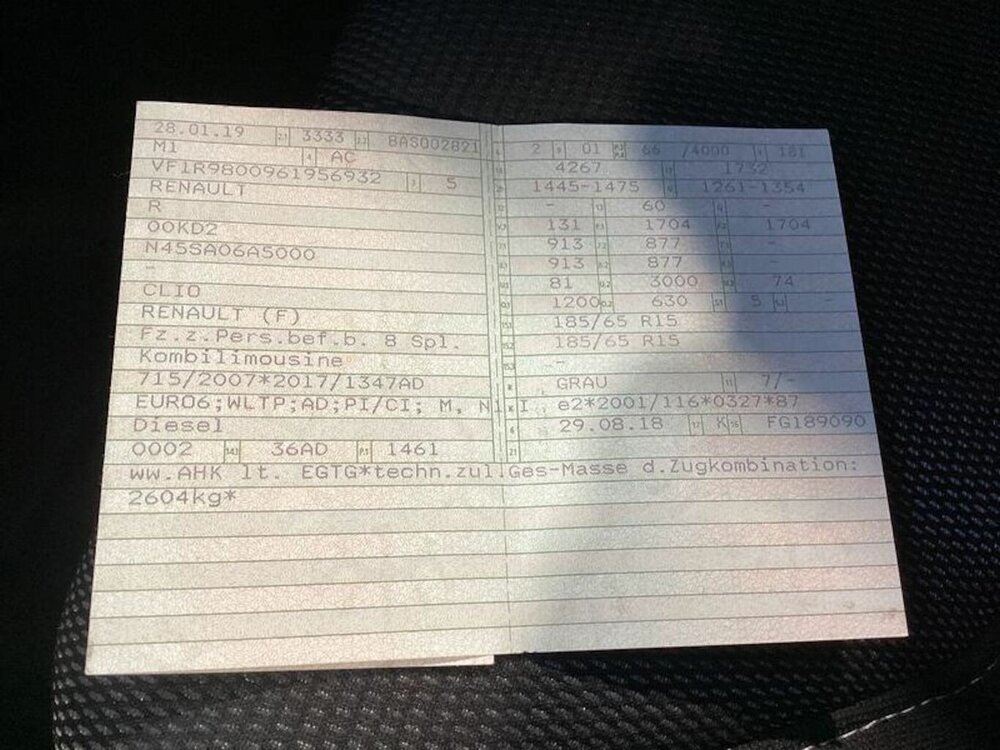 28.01.19 2.1 3333 2.2 8AS002821
M1 4 AC
VF1R9800961956932 3 5
RENAULT
R
00KD2
N45SA06A5000
-
CLIO
RENAULT (F)
Fz.z.Pers.bef.b. 8 Spl.
Kombilimousine
715/2007*2017/1347AD
EURO6;WLTP;AD;PI/CI; M, N1 I
Diesel
0002 14.1 36AD P.1 1461
2 9 01 66 /4000 181
4267 1732
1445-1475 1261-1354
- 60 -
131 1704 1704
913 877 -
913 877 -
81 3000 74
1200 630 5 -
185/65 R15
185/65 R15
-
GRAU 11 7/-
K e2*2001/116*0327*87
6 29.08.18 17 K 16 FG189090
21
ww.AHK lt. EGTG*techn.zul.Ges-Masse d.Zugkombination:
2604kg*